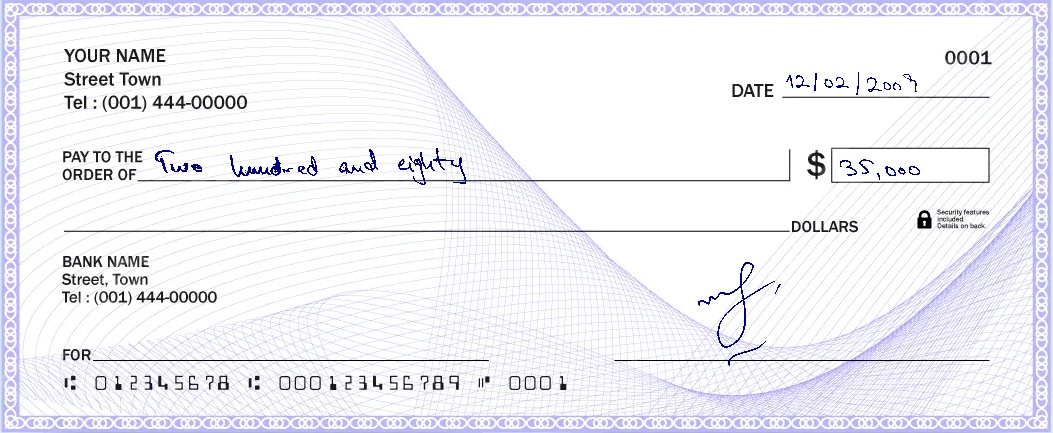 YOUR NAME
0001
Street Town
DATE 12/02/2009
Tel : (001) 444-00000
PAY TO THE
ORDER OF Two hundred and eighty $ 35,000
DOLLARS
Security features
included.
Details on back.
BANK NAME
Street, Town
Tel : (001) 444-00000
FOR
⑆ 012345678 ⑆ 000123456789 ⑈ 0001